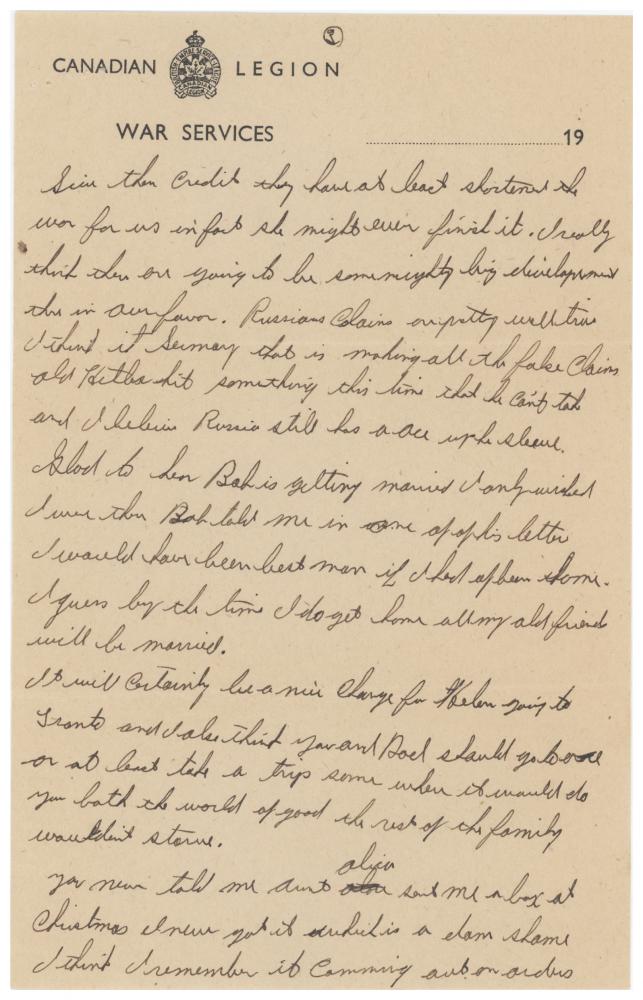 2
CANADIAN LEGION
WAR SERVICES
19
Give them Credit they have at least shortened the
war for us infact she might even finish it. I really
think there are going to be some mighty big development
there in our favor. Russians Claims are pretty well true
I think it Germany that is making all the false Claims
old Hitler hit something this time that he can't take
and I believe Russia still has a ace up he sleeve.
Glad to hear Bob is getting married I only wished
I were there Bob told me in one of of his letter
I would have been best man if I had of been home.
I guess by the time I do get home all my old friends
will be married.
It will Certainly be a nice Change for Helen going to
and I also think you and Dad should go
or at least take a trip some where it would do
you both the world of good the rest of the family
wouldn't starve.
alice
you never told me aunt sent me a box at
Christmas I never got it which is a dam shame
I think I remember it Comming out on orders